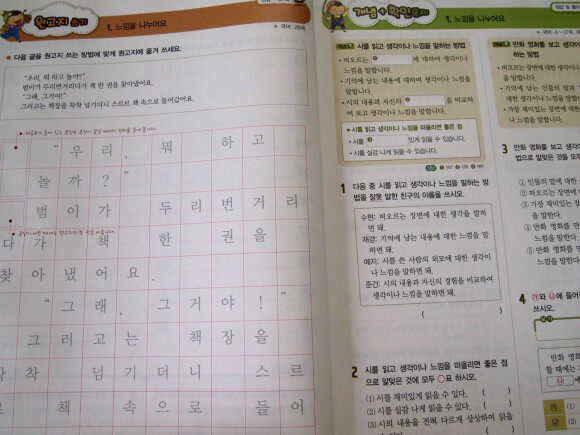 원고지 쓰기
1. 느낌을 나누어요
▶ 국어:
다음 글을 원고지 쓰는 방법에 맞게 원고지에 옮겨 쓰세요.
"우리, 뭐 하고 놀까?"
범이가 두리번거리다가 책 한 권을 찾아냈어요.
"그래, 그거야!"
그러고는 책장을 착착 넘기더니 스르르 책 속으로 들어갔어요.
"우리, 뭐 하고
놀까?"
범이가 두리번거리
다가 책 한 권을
찾아냈어요.
"그래, 그거야!"
그러고는 책장을
착착 넘기더니 스르
르 책 속으로 들어
개념 + 확인문제
1. 느낌을 나누어요
시를 읽고 생각이나 느낌을 말하는 방법
• 떠오르는 ❶ 에 대하여 생각이나 느낌을 말합니다.
• 기억에 남는 내용에 대하여 생각이나 느낌을 말합니다.
• 시의 내용과 자신의 ❷ 을 비교하여 보고 생각이나 느낌을 말합니다.
• 시를 읽고 생각이나 느낌을 떠올리면 좋은 점
- 시를 ❸ 있게 읽을 수 있습니다.
- 시를 실감 나게 읽을 수 있습니다.
1 다음 중 시를 읽고 생각이나 느낌을 말하는 방
법을 잘못 말한 친구의 이름을 쓰시오.
수현: 떠오르는 장면에 대한 생각을 말하
면 돼.
재경: 기억에 남는 내용에 대한 느낌을 말
하면 돼.
예지: 시를 쓴 사람의 외모에 대한 생각이
나 느낌을 말하면 돼.
준건: 시의 내용과 자신의 경험을 비교하여
생각이나 느낌을 말하면 돼.
( )
2 시를 읽고 생각이나 느낌을 떠올리면 좋은 점
으로 알맞은 것에 모두 ○표 하시오.
(1) 시를 재미있게 읽을 수 있다. ( )
(2) 시를 실감 나게 읽을 수 있다. ( )
(3) 시의 내용을 전혀 다르게 상상하여 읽을
만화 영화를 보고
• 떠오르는 장면에 대한
느낌을 말합니다.
• 기억에 남는 인물의 말과
대한 생각이나 느낌을
• 가장 재미있는 장면에
느낌을 말합니다.
3 만화 영화를 보고 생각
법으로 알맞은 것을 모두
① 인물의 말에 대한
② 떠오르는 장면에
③ 가장 재미있는 장
을 말한다.
④ 만화 영화를 만든
⑤ 만화 영화를
4 ㉮와 ㉯에 들어
쓰시오.
보기
만화 영화
할 때에는
㉯
㉮ (
㉯ (